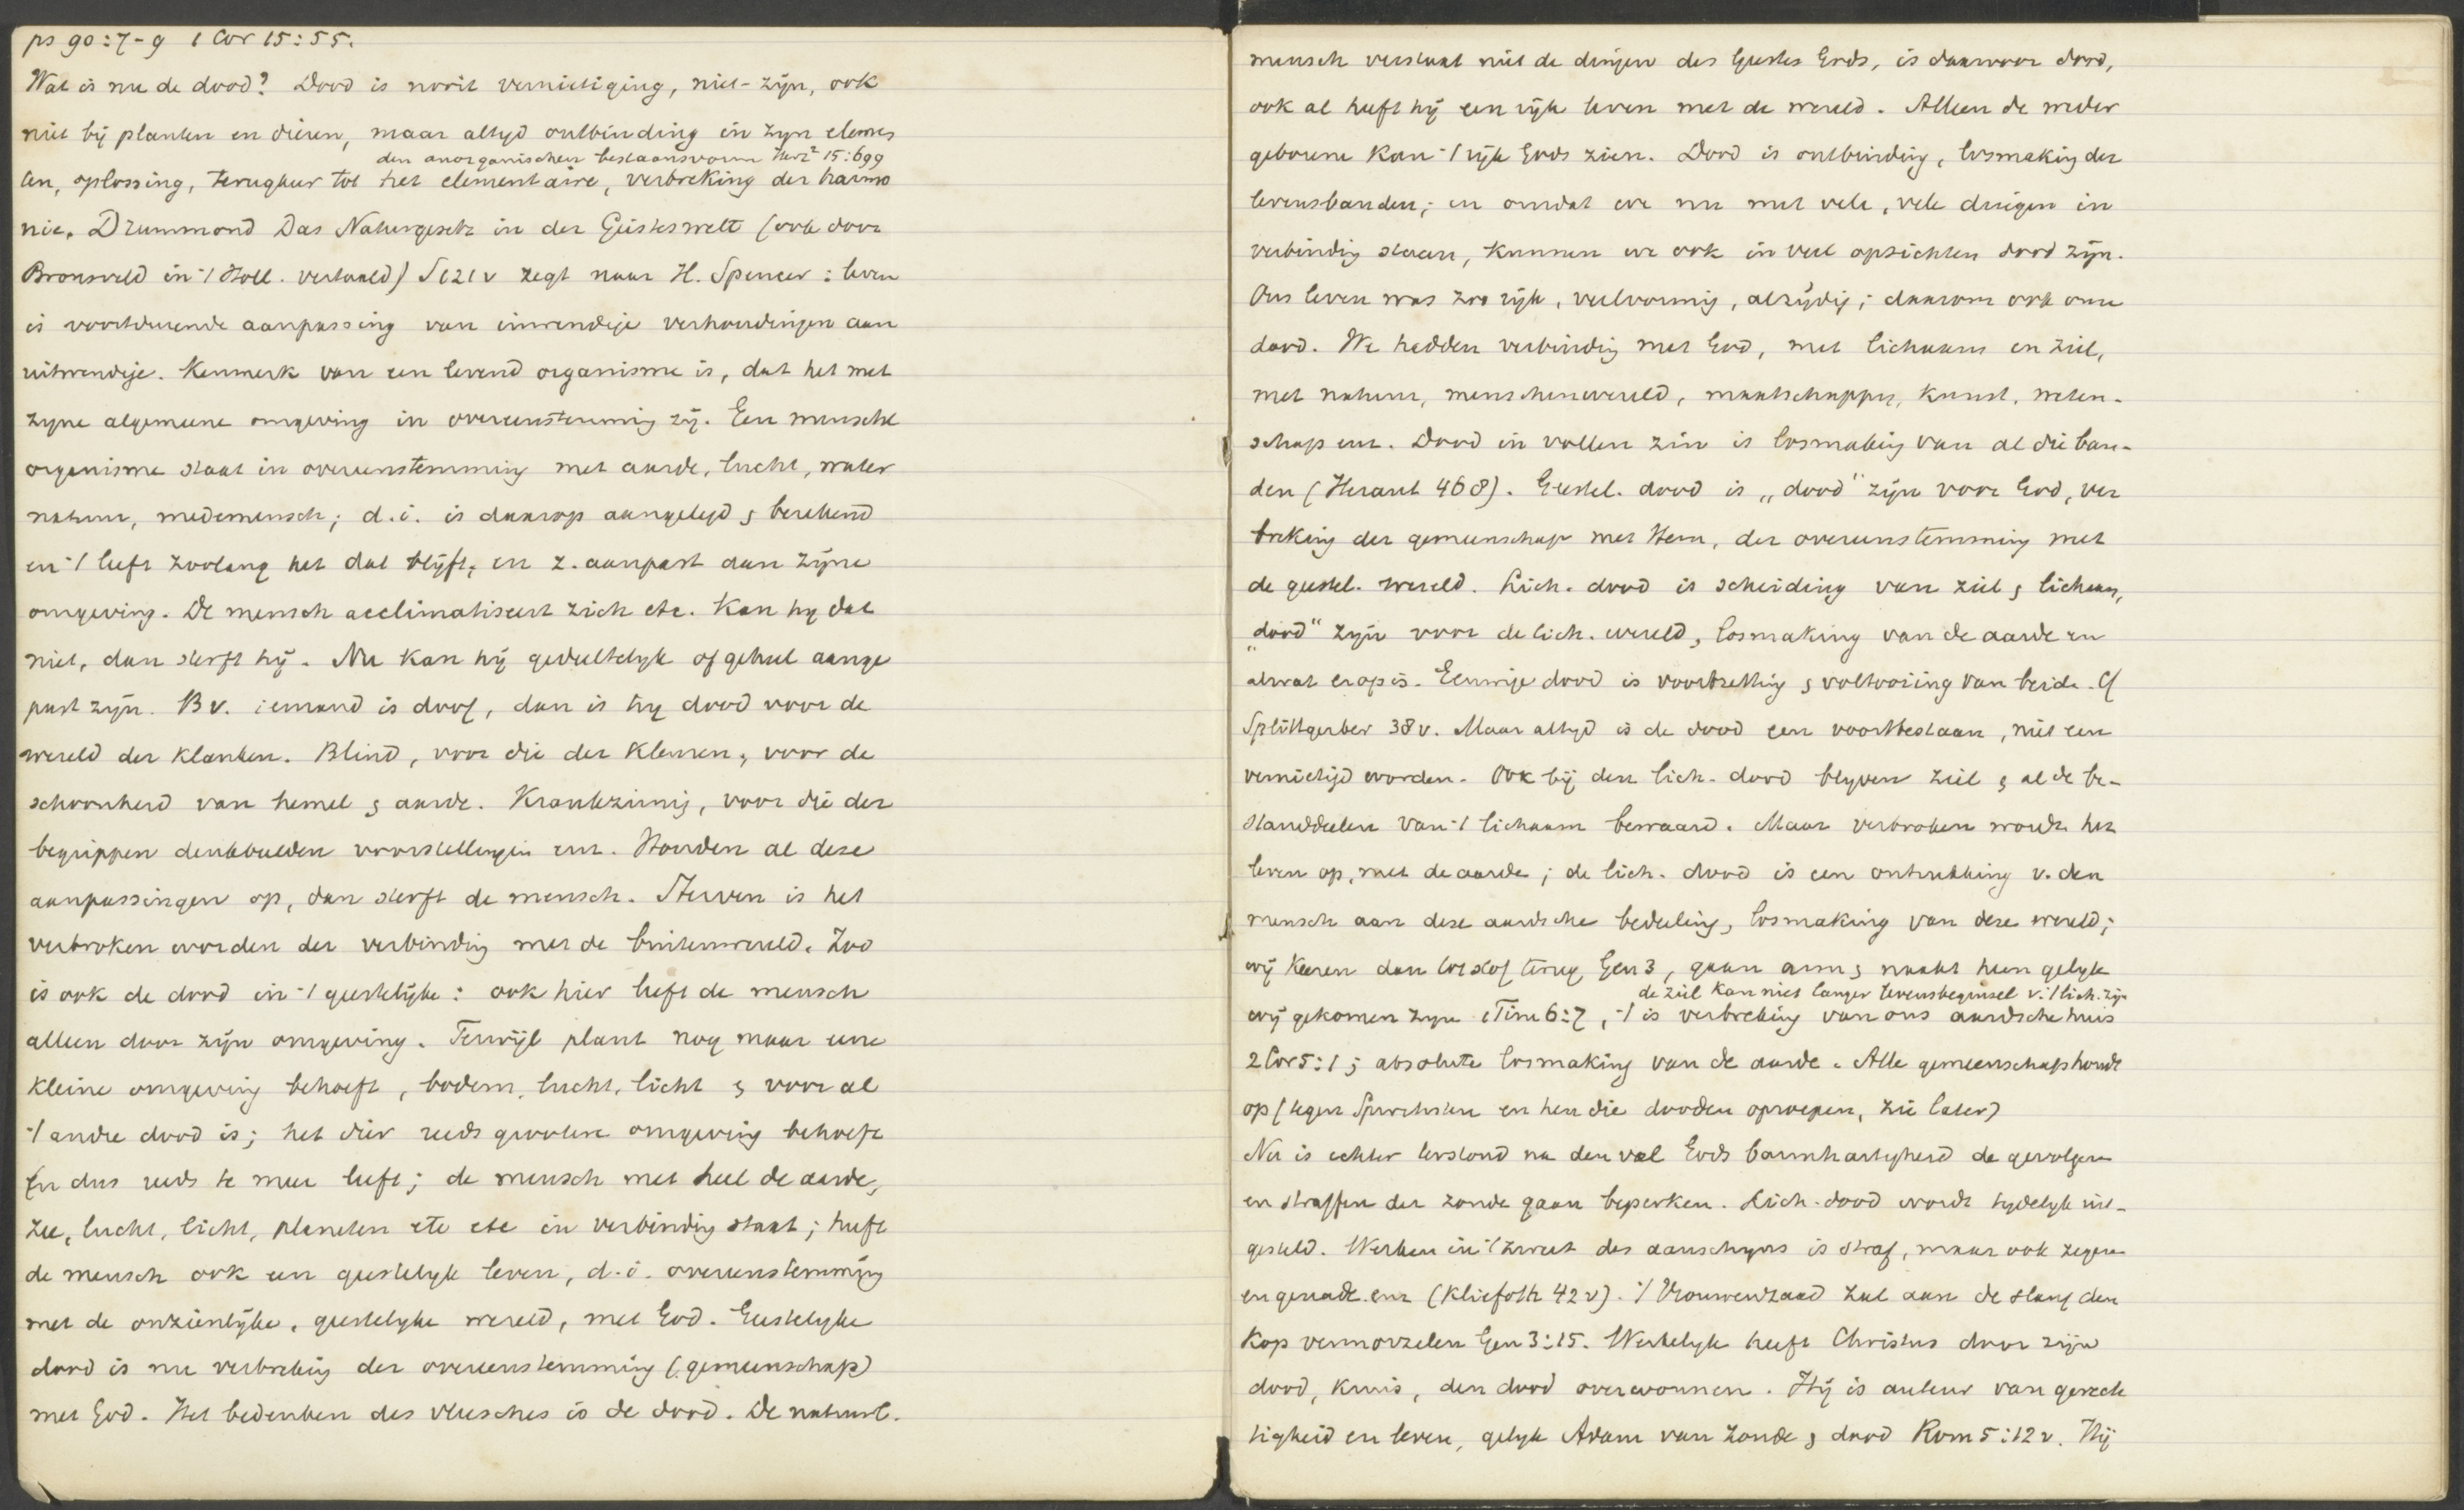 ps 90:7-9 1 Cor 15:55.
Wat is nu de dood? Dood is nooit vernietiging, niet-zijn, ook
niet bij planten en dieren, maar altyd ontbinding in zyn elemen
den anorganischen bestaansvorm Herz² 15:699
ten, oplossing, terugkeer tot het elementaire, verbreking der harmo
nie. Drummond Das Naturgesetz in der Geisteswelt (ook door
Bronsveld in 't Holl. vertaald) S 121 v zegt naar H. Spencer: leven
is voortdurende aanpassing van inwendige verhoudingen aan
uitwendige. Kenmerk van een levend organisme is, dat het met
zyne algemeene omgeving in overeenstemming zij. Een menschel
organisme staat in overeenstemming met aarde, lucht, water
natuur, medemensch; d.i. is daarop aangelegd & berekend
en 't leeft zoolang het dat blijft, en z. aanpast aan zijne
omgeving. De mensch acclimatiseert zich etc. Kan hy dat
niet, dan sterft hij. Nu kan hij gedeeltelyk of geheel aange
past zijn. Bv. iemand is doof, dan is hy dood voor de
wereld der klanken. Blind, voor die der kleuren, voor de
schoonheid van hemel & aarde. Krankzinnig, voor die der
begrippen denkbeelden voorstellingen enz. Houden al deze
aanpassingen op, dan sterft de mensch. Sterven is het
verbroken worden der verbinding met de buitenwereld. Zoo
is ook de dood in 't geestelijke: ook hier leeft de mensch
alleen door zijn omgeving. Terwijl plant nog maar eene
kleine omgeving behoeft, bodem, lucht, licht & voor al
't andre dood is; het dier reeds grootere omgeving behoeft
en dus reeds te meer leeft; de mensch met heel de aarde,
zee, lucht, licht, planeten etc etc in verbinding staat; heeft
de mensch ook een geestelyk leven, d.i. overeenstemming
met de onzienlijke, geestelyke wereld, met God. Geestelyke
dood is nu verbreking der overeenstemming (gemeenschap)
met God. Het bedenken des vleesches is de dood. De natuurl.
mensch verstaat niet de dingen des Geestes Gods, is daarvoor dood,
ook al heeft hij een rijk leven met de wereld. Alleen de weder
geborene kan 't rijk Gods zien. Dood is ontbinding, losmaking der
levensbanden; en omdat we nu met vele, vele dingen in
verbindig staan, kunnen we ook in veel opzichten dood zijn.
Ons leven was zoo rijk, veelvormig, alzijdig; daarom ook onze
dood. We hadden verbindig met God, met lichaam en ziel,
met natuur, menschenwereld, maatschappy, kunst, weten-
schap enz. Dood in vollen zin is losmaking van al die ban-
den (Heraut 468). Geestel. dood is „dood" zijn voor God, ver
breking der gemeenschap met Hem, der overeenstemming met
de geestel. wereld. Lich. dood is scheiding van ziel & lichaam,
„dood" zijn voor de lich. wereld, losmaking van de aarde en
alwat erop is. Eeuwige dood is voortzetting & voltooiing van beide. Cf
Splittgerber 38 v. Maar altyd is de dood een voortbestaan, niet een
vernietigd worden. Ook bij den lich. dood blyven ziel & al de be-
standdeelen van 't lichaam bewaard. Maar verbroken wordt het
leven op, met de aarde; de lich. dood is een ontrukking v. den
mensch aan deze aardsche bedeeling, losmaking van deze wereld;
wij keeren dan tot stof terug Gen 3, gaan arm & naakt heen gelyk
de ziel kan niet langer levensbeginsel v. 't lich. zijn
wij gekomen zyn 1 Tim 6:7, 't is verbreking van ons aardsche huis
2 Cor 5:1; absolute losmaking van de aarde. Alle gemeenschap houdt
op (tegen Spiritisten en hen die dooden oproepen, zie later)
Nu is echter terstond na den val Gods barmhartigheid de gevolgen
en straffen der zonde gaan beperken. Lich. dood wordt tydelyk uit-
gesteld. Werken in 't zweet des aanschyns is straf, maar ook zegen
en genade enz (Kliefoth 42 v). 't Vrouwenzaad zal aan de slang den
kop vermorzelen Gen 3:15. Werkelyk heeft Christus door zijn
dood, kruis, den dood overwonnen. Hij is auteur van gerech
tigheid en leven, gelyk Adam van zonde & dood Rom 5:12 v. Hij